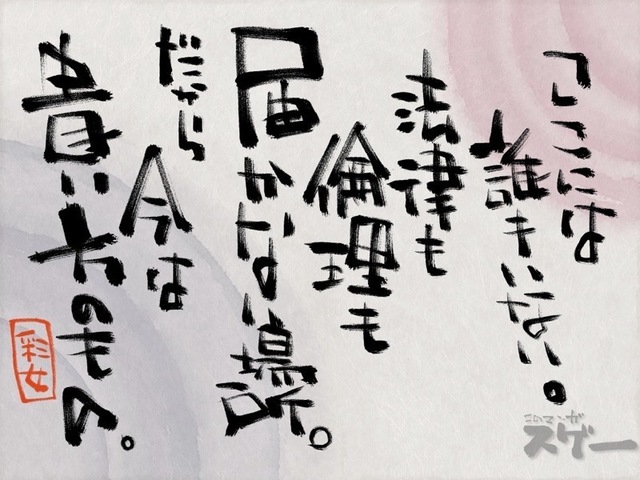 ここには
誰もいない。
法律も
倫理も
届かない場所。
だから
今は
貴い方のもの。
彩女
このマンガ
スゲー